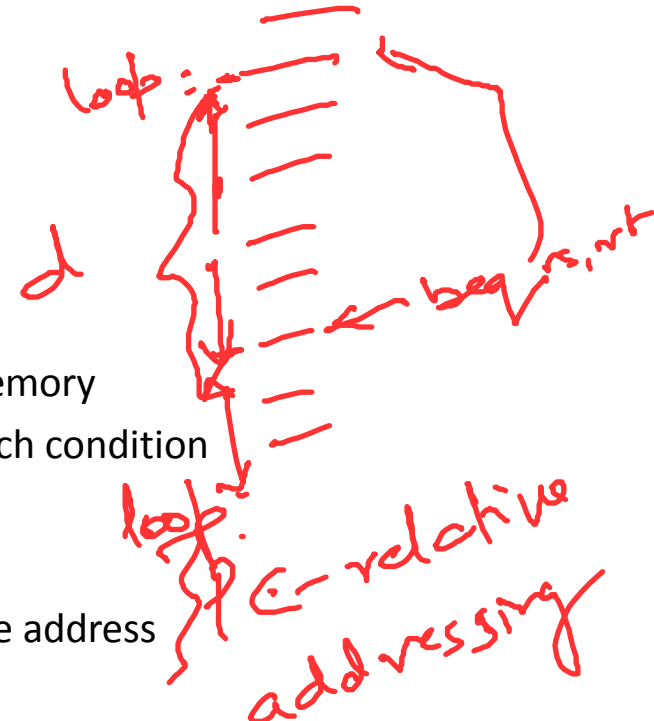 loop:
d
beq rs, rt
emory
ch condition
loop:
PC-relative
e address
addressing